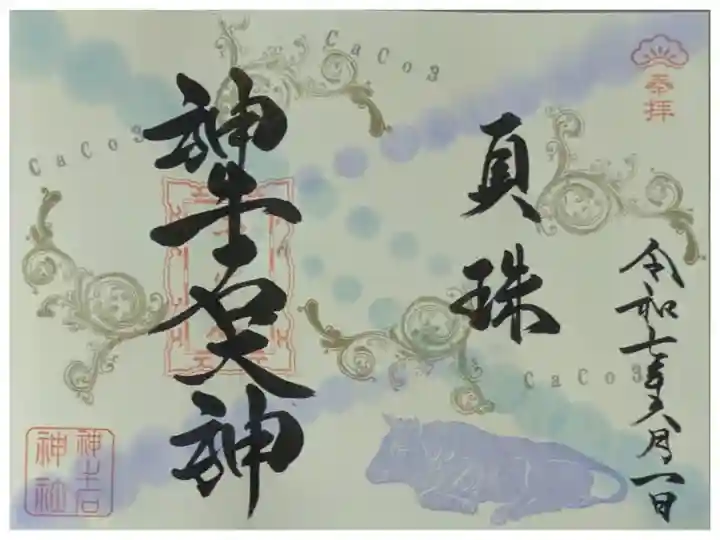 奉拝
令和七年六月一日
CaCo3
真珠
CaCo3
CaCo3
神牛石大神
神社